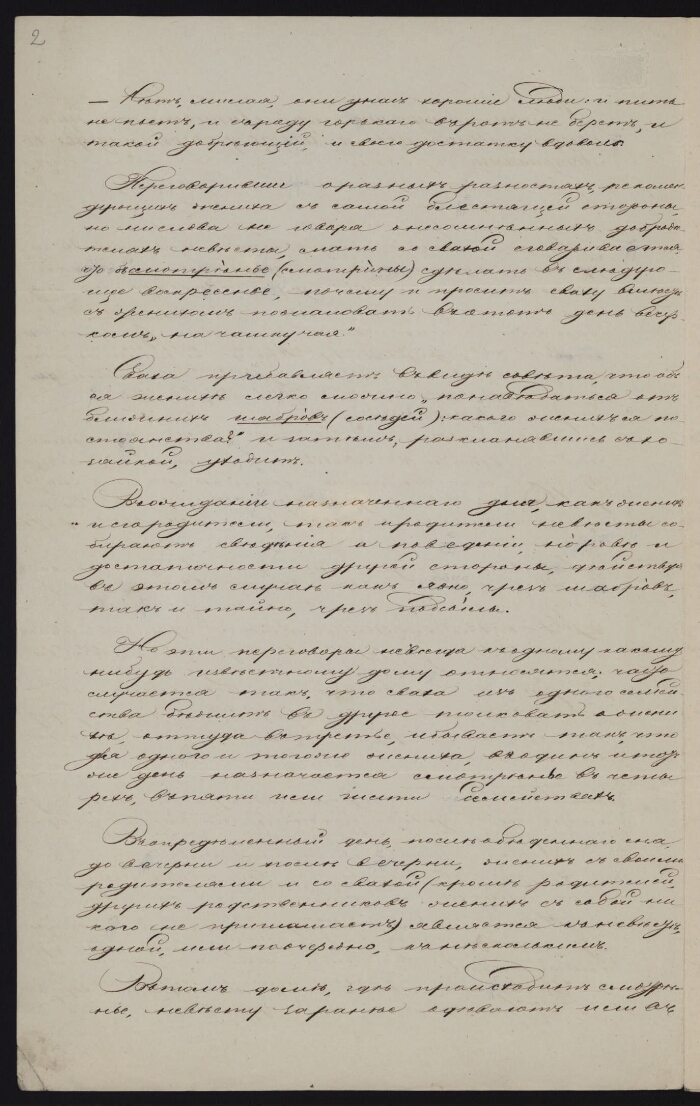 2
— Нѣтъ, милая, они унасъ хорошіе люди: и пить
не пьетъ, и съ роду горькаго въ ротъ не беретъ, и
такой добрѣющій, и свого достатку вдоволь.
Переговоривши о разныхъ разностяхъ, рекомен
дующихъ жениха съ самой блестящей стороны,
но ни слова не говоря о несомнѣнныхъ добродѣ
теляхъ невѣсты, мать со свахой сговаривается
смотрѣнье (смотрины) сдѣлать въ слѣдую-
щее воскресенье, почему и проситъ сваху вмѣстѣ
съ женихомъ пожаловать въ этотъ день вечер
комъ, „на чашку чая."
Сваха прибавляетъ въ видѣ совѣта, что объ
ея женихѣ легко можно „понавѣдаться отъ
ближнихъ шабровъ (сосѣдей): какого женихъ по
стоянства?" и затѣмъ, раскланявшись съ хо-
зяйкой, уходитъ.
Въ ожиданіи назначеннаго дня, какъ женихъ
и его родители, такъ и родители невѣсты со
бираютъ свѣдѣнія о поведеніи, норовѣ и
достаточности другой стороны, дѣйствуя
въ этомъ случаѣ какъ явно, чрезъ шабровъ,
такъ и тайно, чрезъ подсылы.
Но эти переговоры не всегда къ одному какому
нибудь извѣстному дому относятся; часто
случается такъ, что сваха изъ одного семей
ства бѣжитъ въ другое толковать о жени
хѣ, оттуда въ третье, и бываетъ такъ, что
для одного и того же жениха, въ одинъ и тот
же день назначается смотрѣнье въ четы
рехъ, въ пяти или шести семействахъ.
Въ опредѣленный день, послѣ обѣденнаго сна,
до вечерни и послѣ вечерни, женихъ съ своими
родителями и со свахой (кромѣ родителей,
другихъ родственниковъ женихъ съ собой ни
кого не приглашаетъ) является къ невѣстѣ,
одной, или поочередно, къ нѣсколькимъ.
Въ томъ домѣ, гдѣ происходитъ смотрѣ
нье, невѣсту заранѣе одѣваютъ или въ